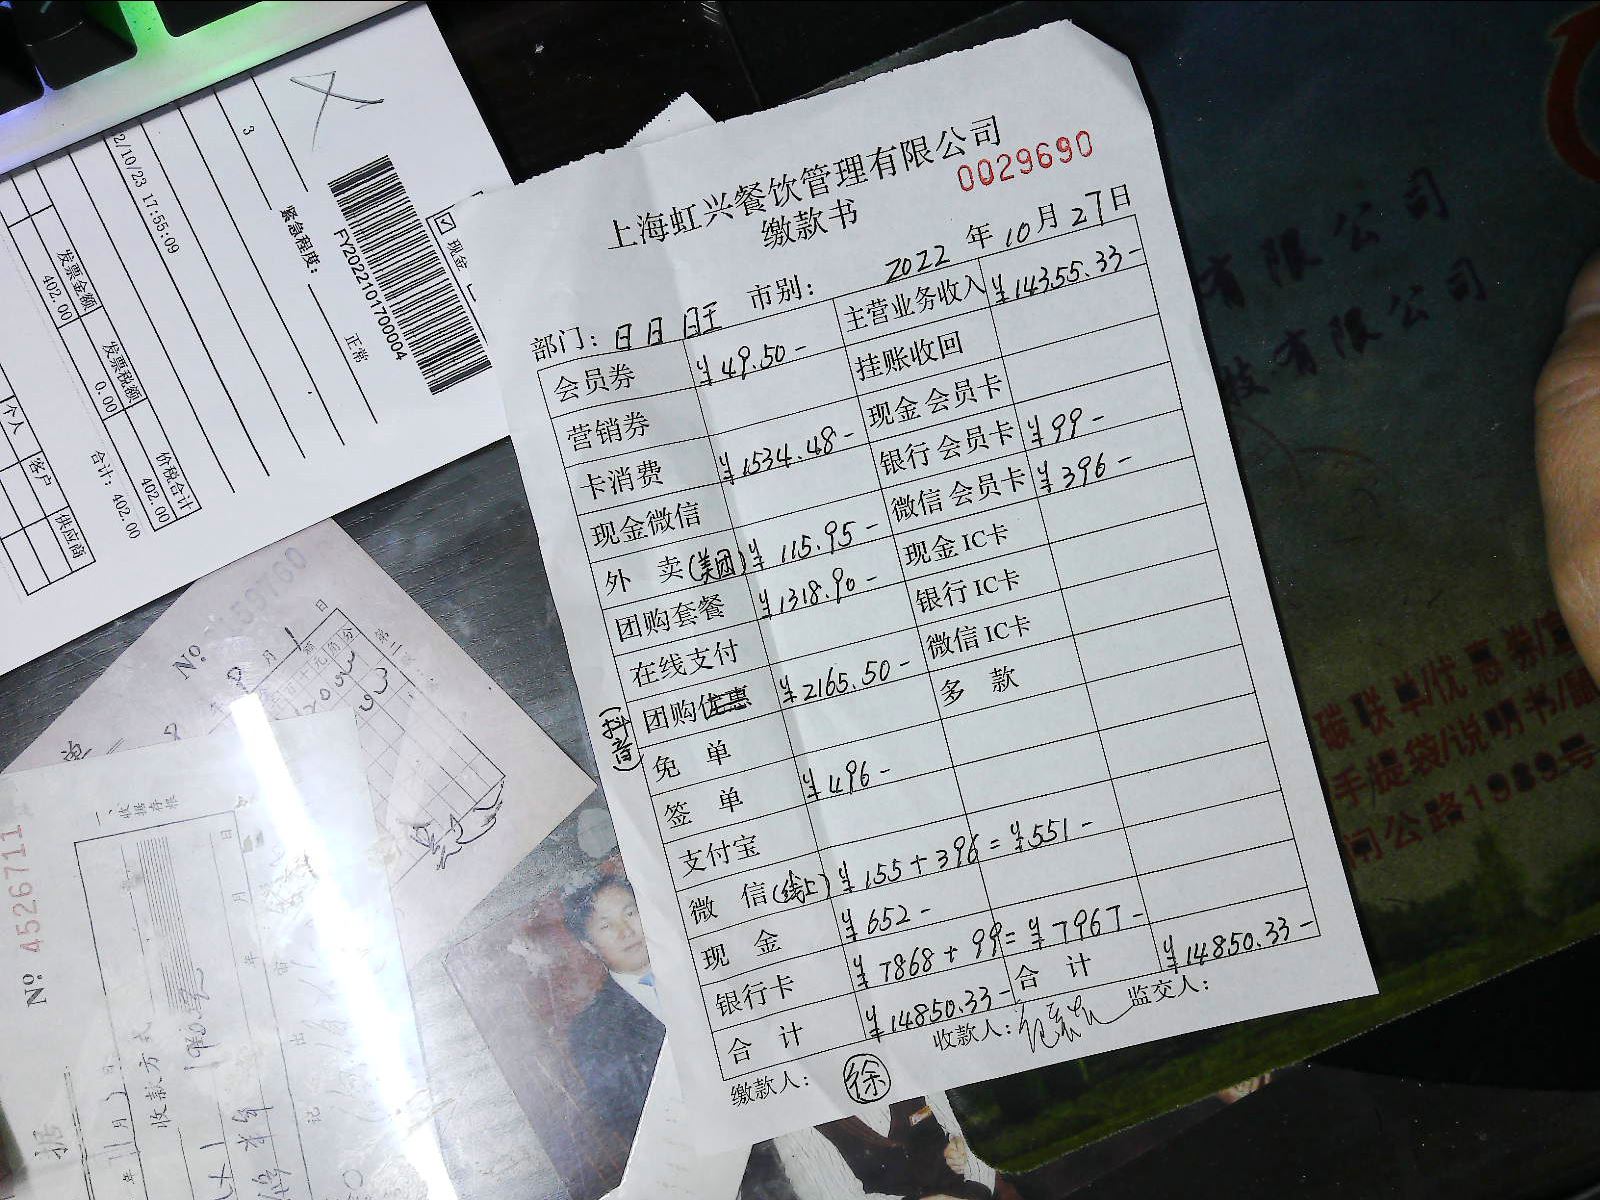 上海虹兴餐饮管理有限公司
0029690
缴款书
部门：日日旺 市别： 2022 年 10 月 27 日
会员券 ¥49.50- 主营业务收入 ¥14355.33-
营销券 挂账收回
卡消费 ¥1534.48- 现金会员卡
现金微信 银行会员卡 ¥99-
外 卖(美团) ¥115.95- 微信会员卡 ¥396-
团购套餐 ¥1318.90- 现金IC卡
在线支付 银行IC卡
(抖音) 团购优惠 ¥2165.50- 微信IC卡
免 单 多 款
签 单 ¥496-
支付宝
微 信(线上) ¥155+396=¥551-
现 金 ¥652-
银行卡 ¥7868+99=¥7967-
合 计 ¥14850.33- 合 计 ¥14850.33-
缴款人： 徐 收款人： 监交人：
3
2/10/23 17:55:09
紧急程度： 正常
FY202210170004
现金
发票金额 发票税额 价税合计
402.00 0.00 402.00
合计：402.00
个人 客户 供应商
№
日
月
第二联
№ 4526711
收据存根
年 月 日
收款方式
据
有限公司
技有限公司
碳联单/优惠券/宣
手提袋/说明书/
闸公路1989号